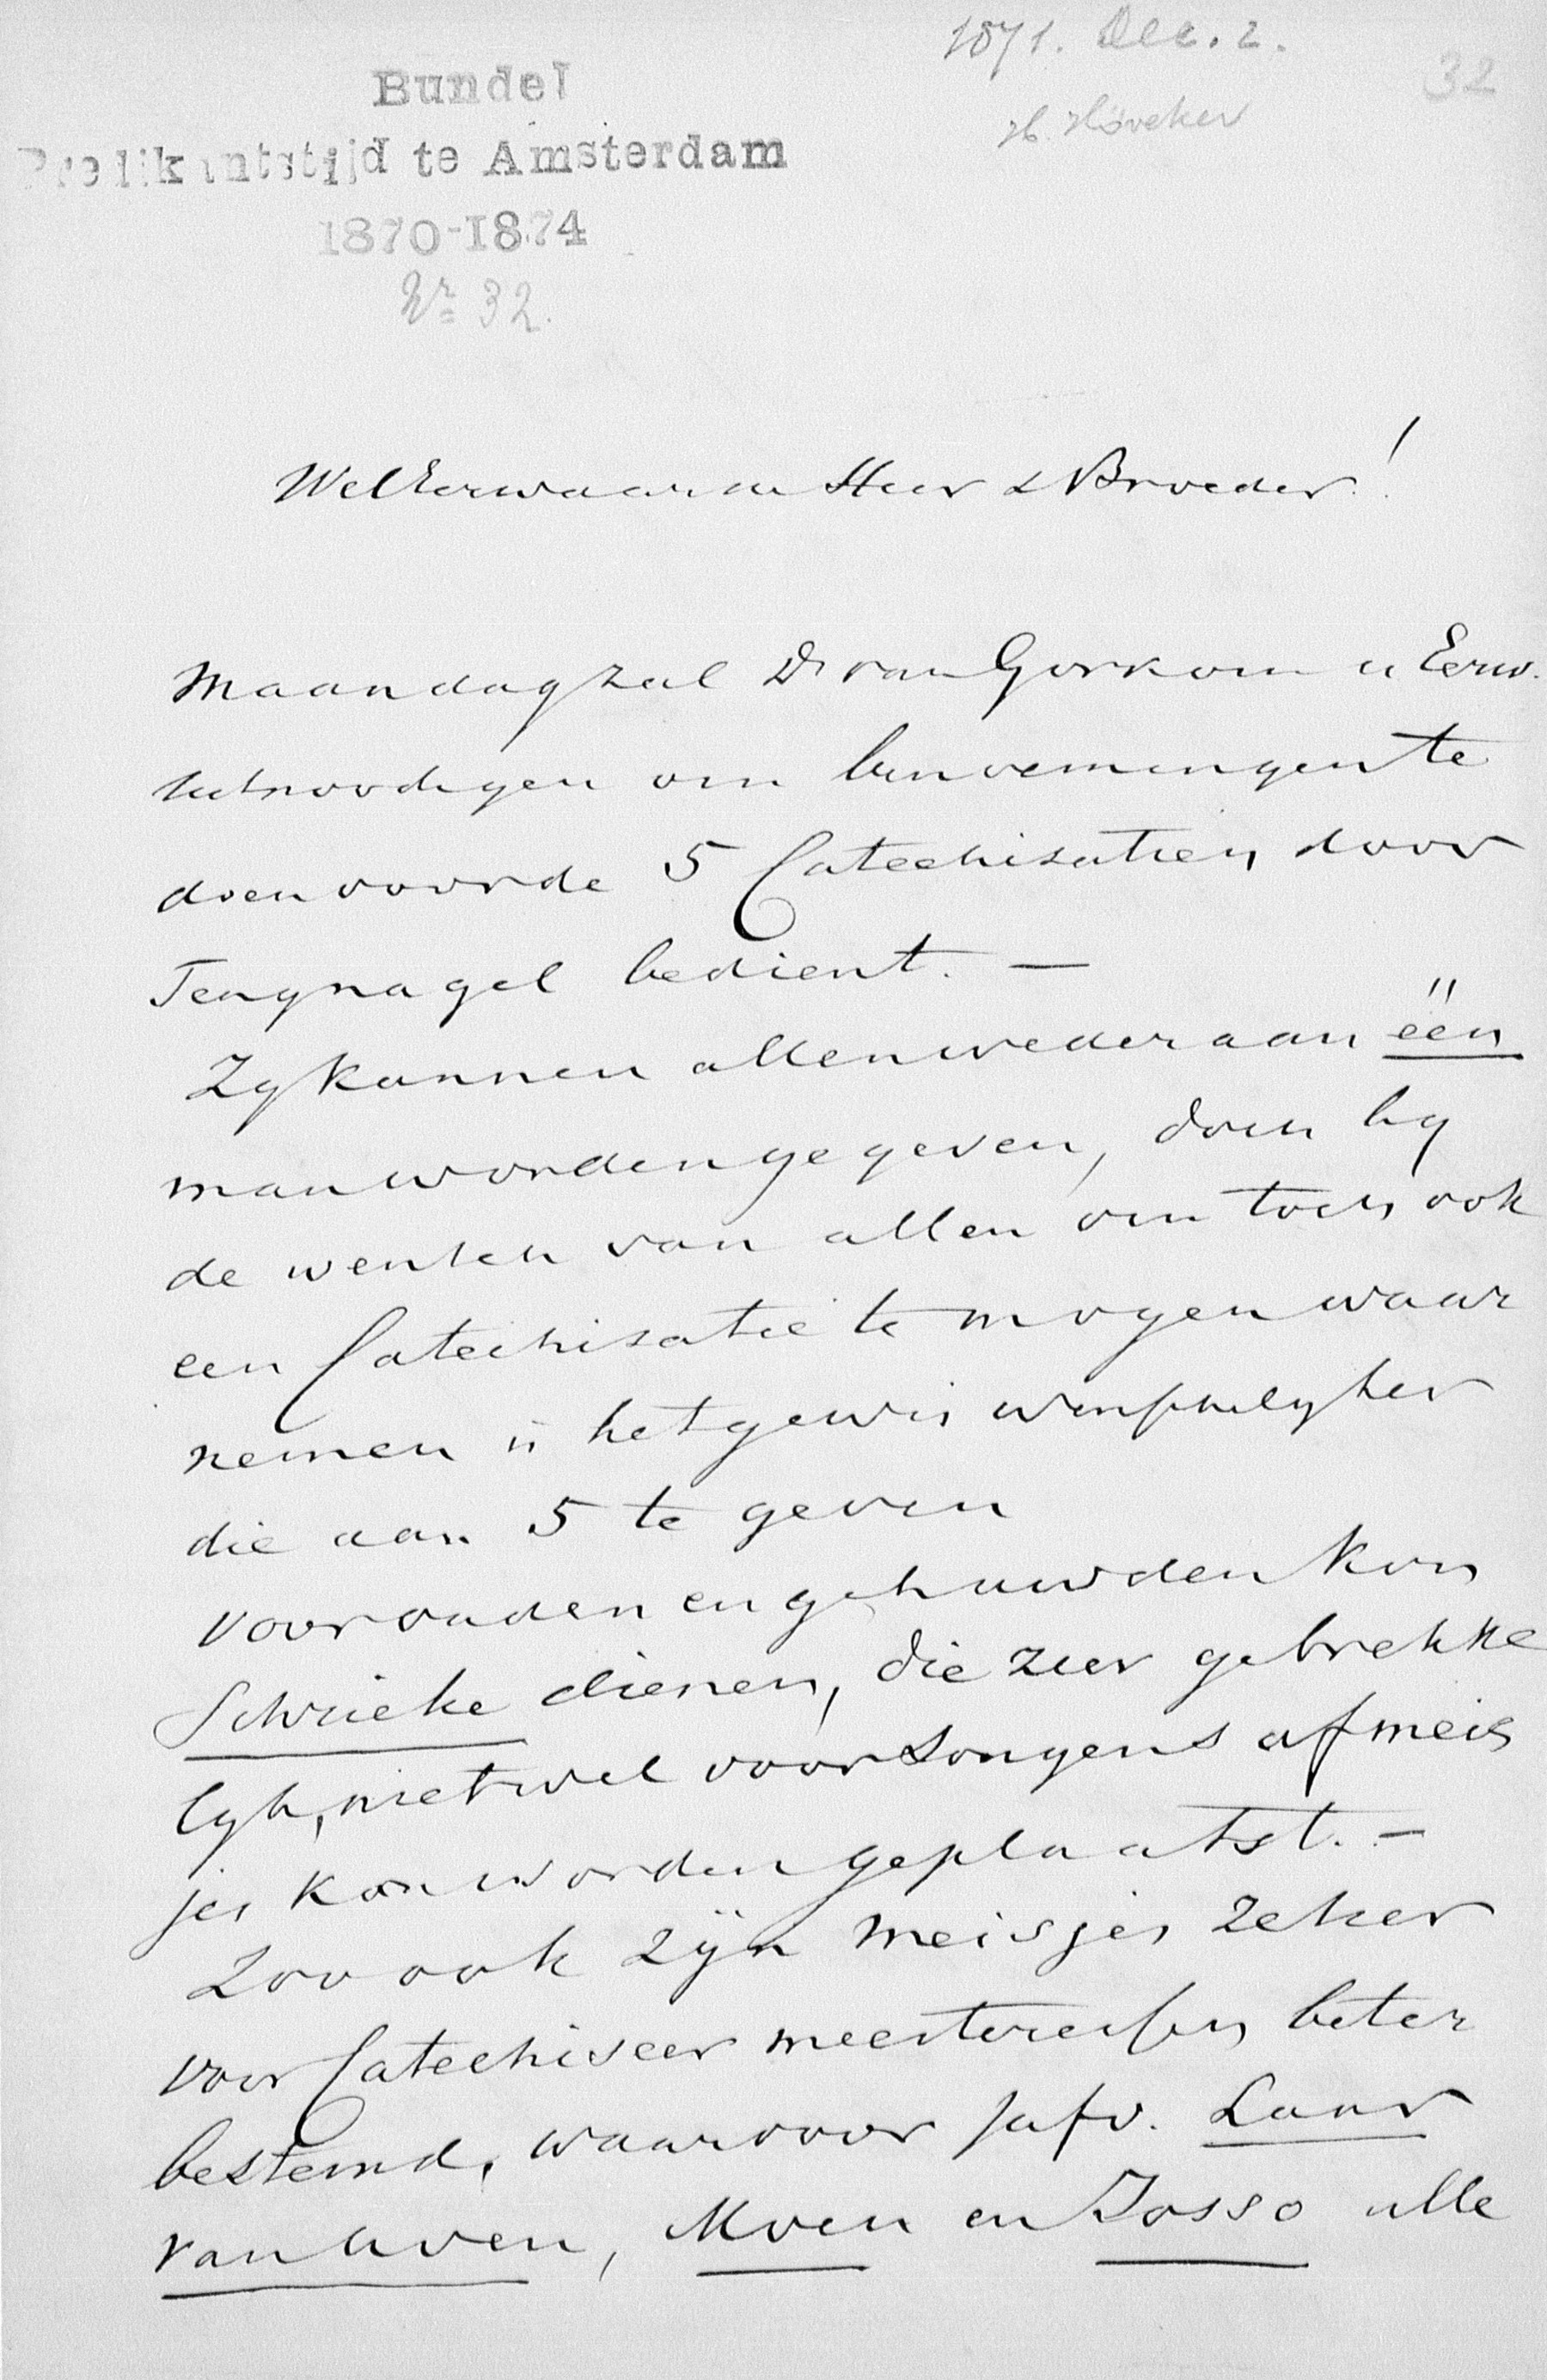 1871. Dec. 2.
32
Bundel
H. Höveker
Predikantstijd te Amsterdam
1870-1874
Nr 32.
WelEerwaarde Heer & Broeder!
Maandag zal Ds van Gorkom u Eerw.
uitnoodigen om benoemingen te
doen voor de 5 Catechisatien door
Tengnagel bedient. —
Zy kunnen allen weder aan één
man worden gegeven, doch by
de wensch van allen om toch ook
een Catechisatie te mogen waar
nemen is het gewis wenschelyker
die aan 5 te geven
Voor ouden en gehuwden kon
Schrieke dienen, die zeer gebrekke
lyk, niet wel voor Jongens of meis
jes kon worden geplaatst. —
Zoo ook zijn meisjes zeker
voor Catechiseer meesteressen beter
bestemd, waarvoor Jufv.
van Loven, Moen en Josso alle